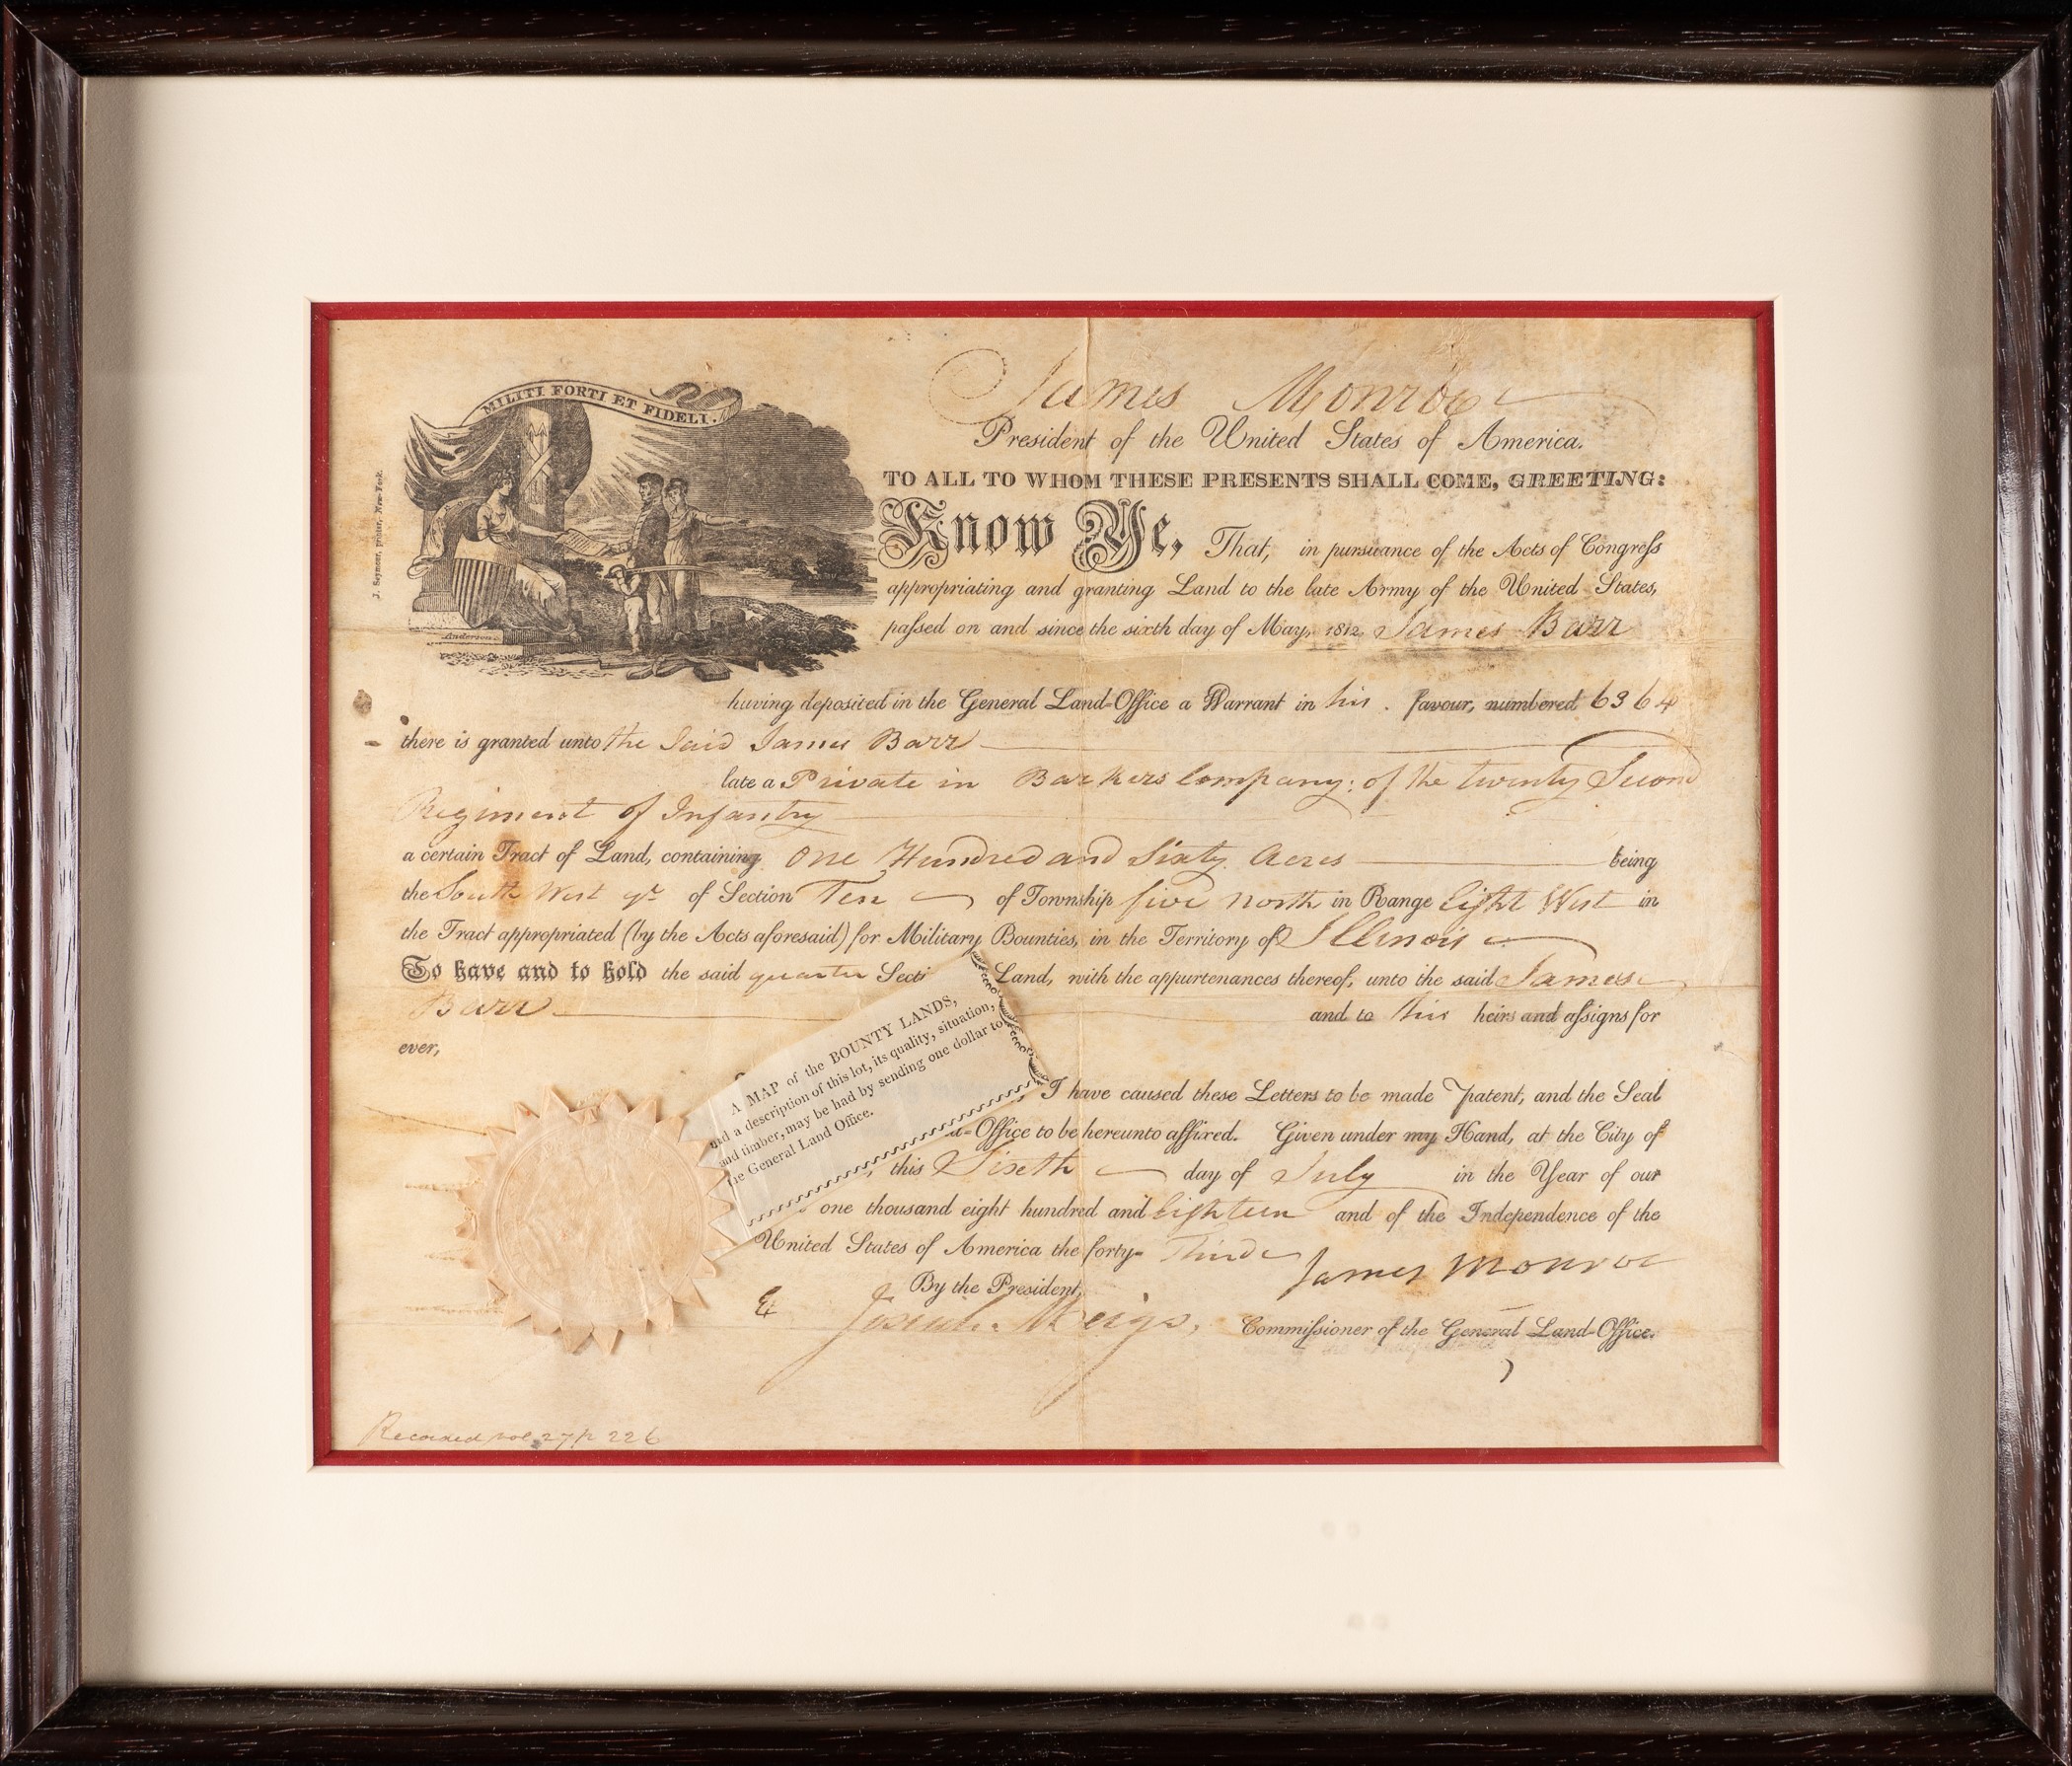 MILITI FORTI ET FIDELI.
J. Seymour, printer, New-York.
Anderson
James Monroe
President of the United States of America.
TO ALL TO WHOM THESE PRESENTS SHALL COME, GREETING:
Know Ye, That, in pursuance of the Acts of Congress
appropriating and granting Land to the late Army of the United States,
passed on and since the sixth day of May, 1812, James Barr
having deposited in the General Land-Office a Warrant in his favour, numbered 6364
there is granted unto the Said James Barr
late a Private in Barkers Company; of the twenty Second
Regiment of Infantry
a certain Tract of Land, containing One Hundred and Sixty Acres being
the South West qr of Section Ten of Township five North in Range Eight West in
the Tract appropriated (by the Acts aforesaid) for Military Bounties, in the Territory of Illinois
To have and to hold the said quarter Secti Land, with the appurtenances thereof, unto the said James
Barr and to his heirs and assigns for
ever,
A MAP of the BOUNTY LANDS,
and a description of this lot, its quality, situation,
and timber, may be had by sending one dollar to
the General Land Office.
I have caused these Letters to be made Patent, and the Seal
d-Office to be hereunto affixed. Given under my Hand, at the City of
, this Sixth day of July in the Year of our
one thousand eight hundred and Eighteen and of the Independence of the
United States of America the forty- Third
James Monroe
By the President,
Josiah Meigs, Commissioner of the General Land-Office.
Recorded vol. 27 p 226